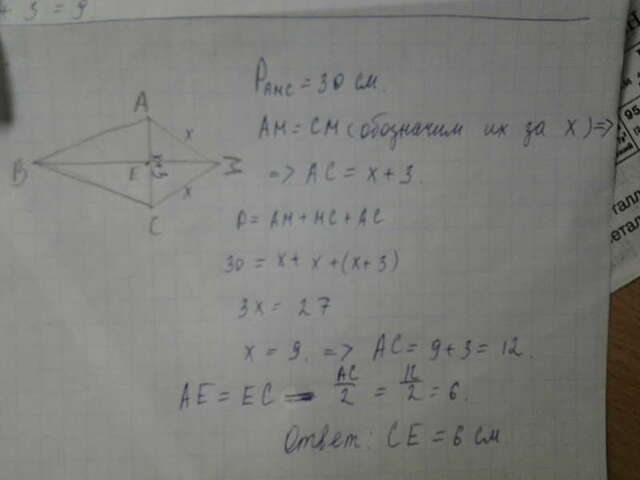 + 3 = 9
P_AMC = 30 см.
AM = CM (обозначим их за x) =>
=> AC = x + 3.
P = AM + MC + AC
30 = x + x + (x + 3)
3x = 27
x = 9. => AC = 9 + 3 = 12.
AE = EC = AC/2 = 12/2 = 6.
Ответ: CE = 6 см.
A
x
B
E
M
x
C
95